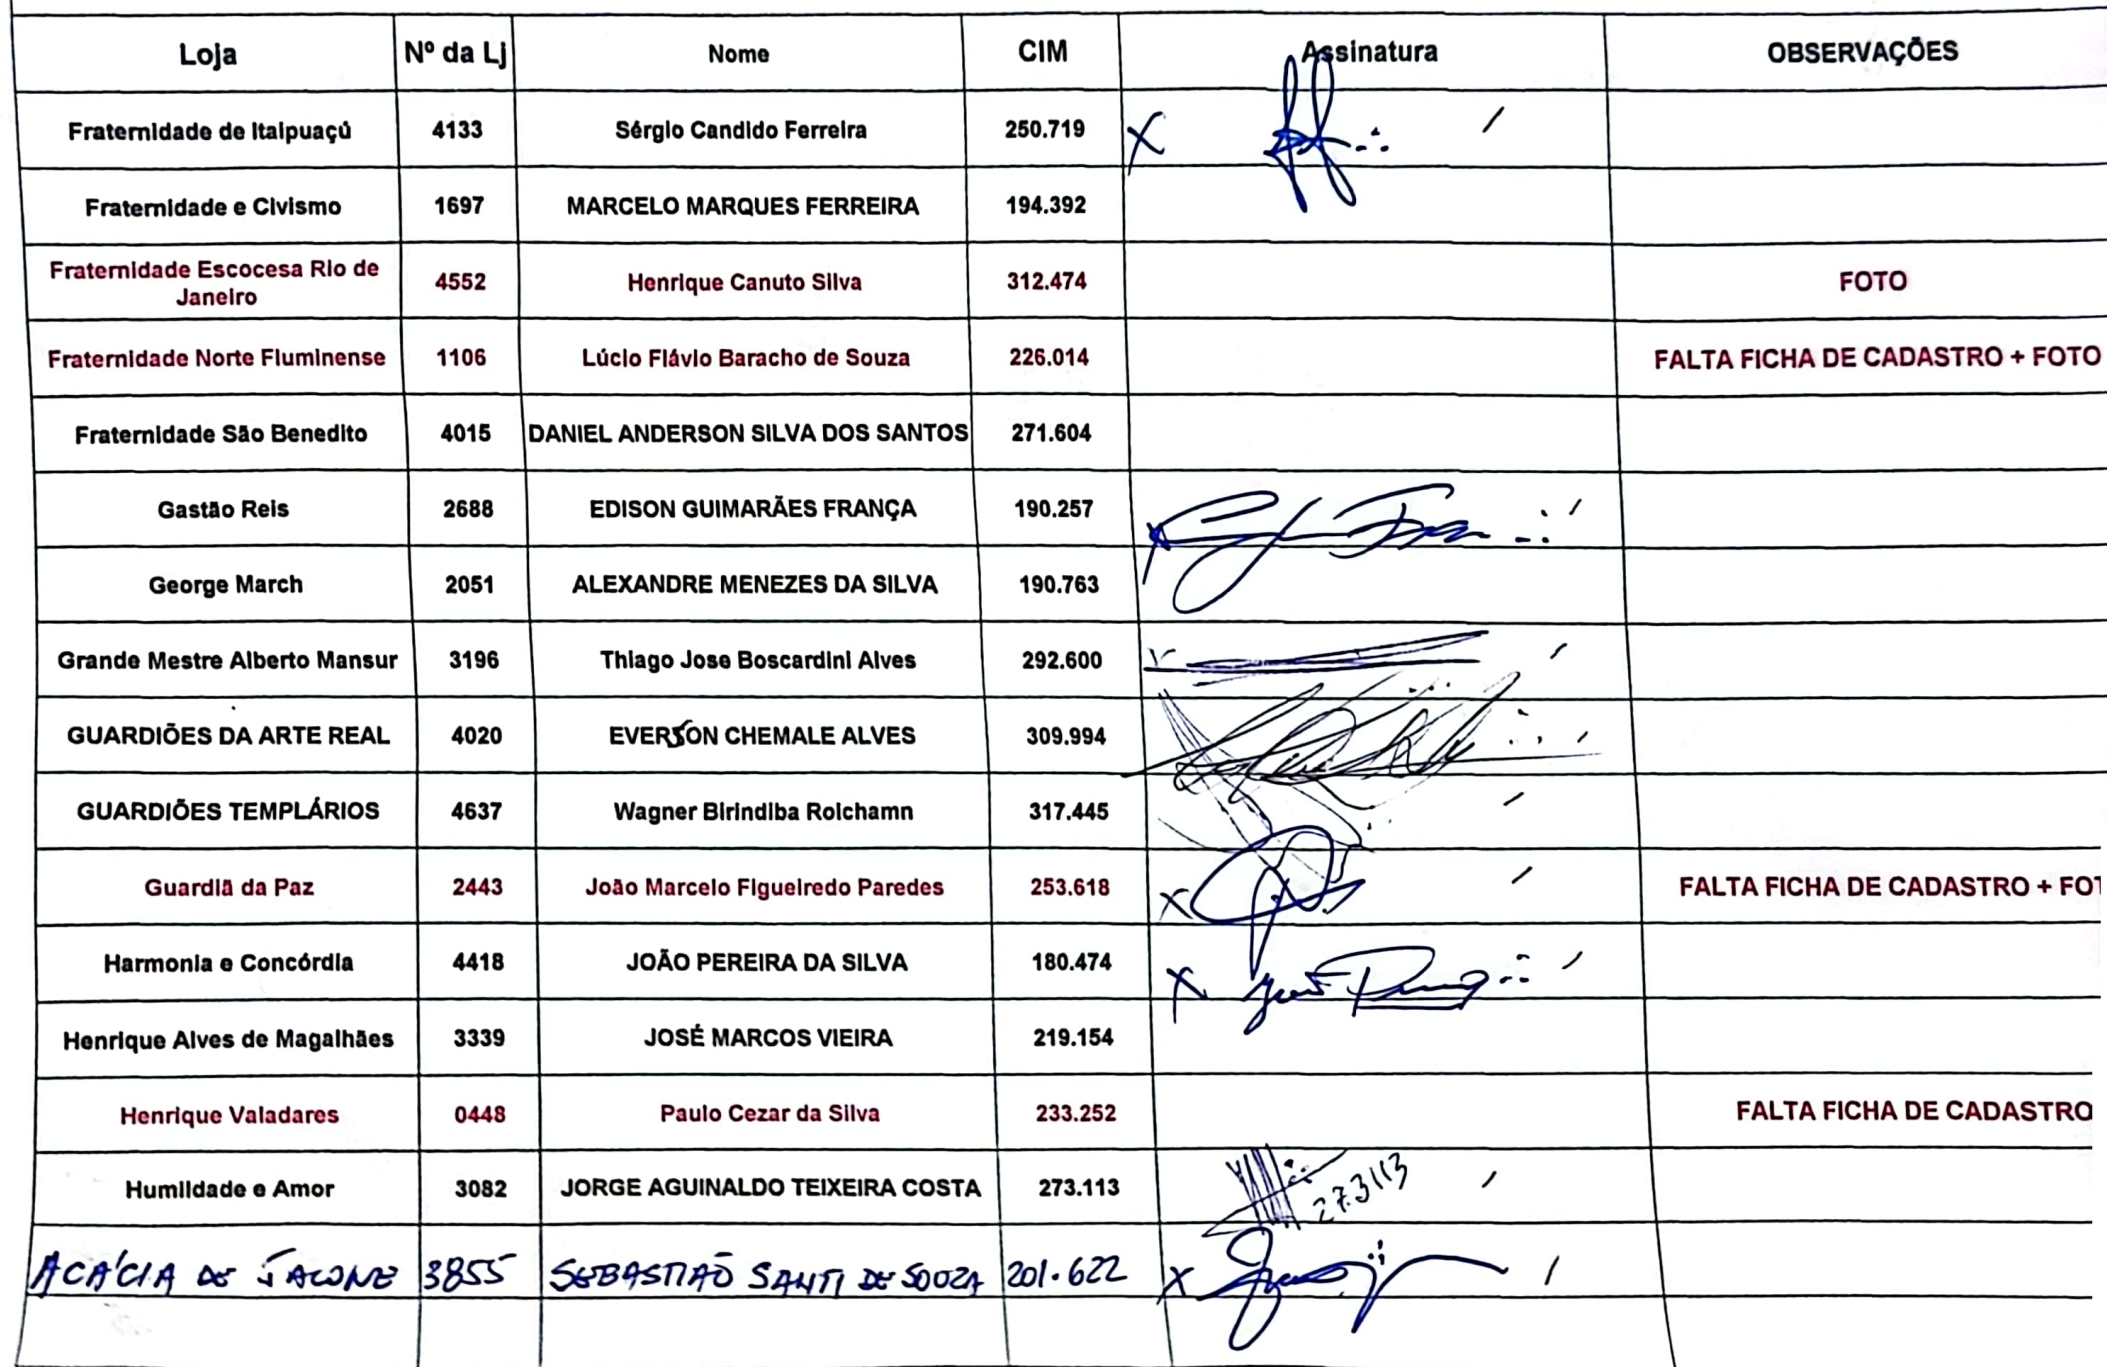 Loja Nº da Lj Nome CIM Assinatura OBSERVAÇÕES
Fraternidade de Itaipuaçú 4133 Sérgio Candido Ferreira 250.719 X
Fraternidade e Civismo 1697 MARCELO MARQUES FERREIRA 194.392
Fraternidade Escocesa Rio de
Janeiro 4552 Henrique Canuto Silva 312.474 FOTO
Fraternidade Norte Fluminense 1106 Lúcio Flávio Baracho de Souza 226.014 FALTA FICHA DE CADASTRO + FOTO
Fraternidade São Benedito 4015 DANIEL ANDERSON SILVA DOS SANTOS 271.604
Gastão Reis 2688 EDISON GUIMARÃES FRANÇA 190.257 X
George March 2051 ALEXANDRE MENEZES DA SILVA 190.763
Grande Mestre Alberto Mansur 3196 Thiago Jose Boscardini Alves 292.600
GUARDIÕES DA ARTE REAL 4020 EVERSON CHEMALE ALVES 309.994
GUARDIÕES TEMPLÁRIOS 4637 Wagner Birindiba Roichamn 317.445
Guardiã da Paz 2443 João Marcelo Figueiredo Paredes 253.618 X FALTA FICHA DE CADASTRO + FOT
Harmonia e Concórdia 4418 JOÃO PEREIRA DA SILVA 180.474 X
Henrique Alves de Magalhães 3339 JOSÉ MARCOS VIEIRA 219.154
Henrique Valadares 0448 Paulo Cezar da Silva 233.252 FALTA FICHA DE CADASTRO
Humildade e Amor 3082 JORGE AGUINALDO TEIXEIRA COSTA 273.113 273113
ACÁCIA DE JACONE 3855 SEBASTIÃO SANTI DE SOUZA 201.622 X